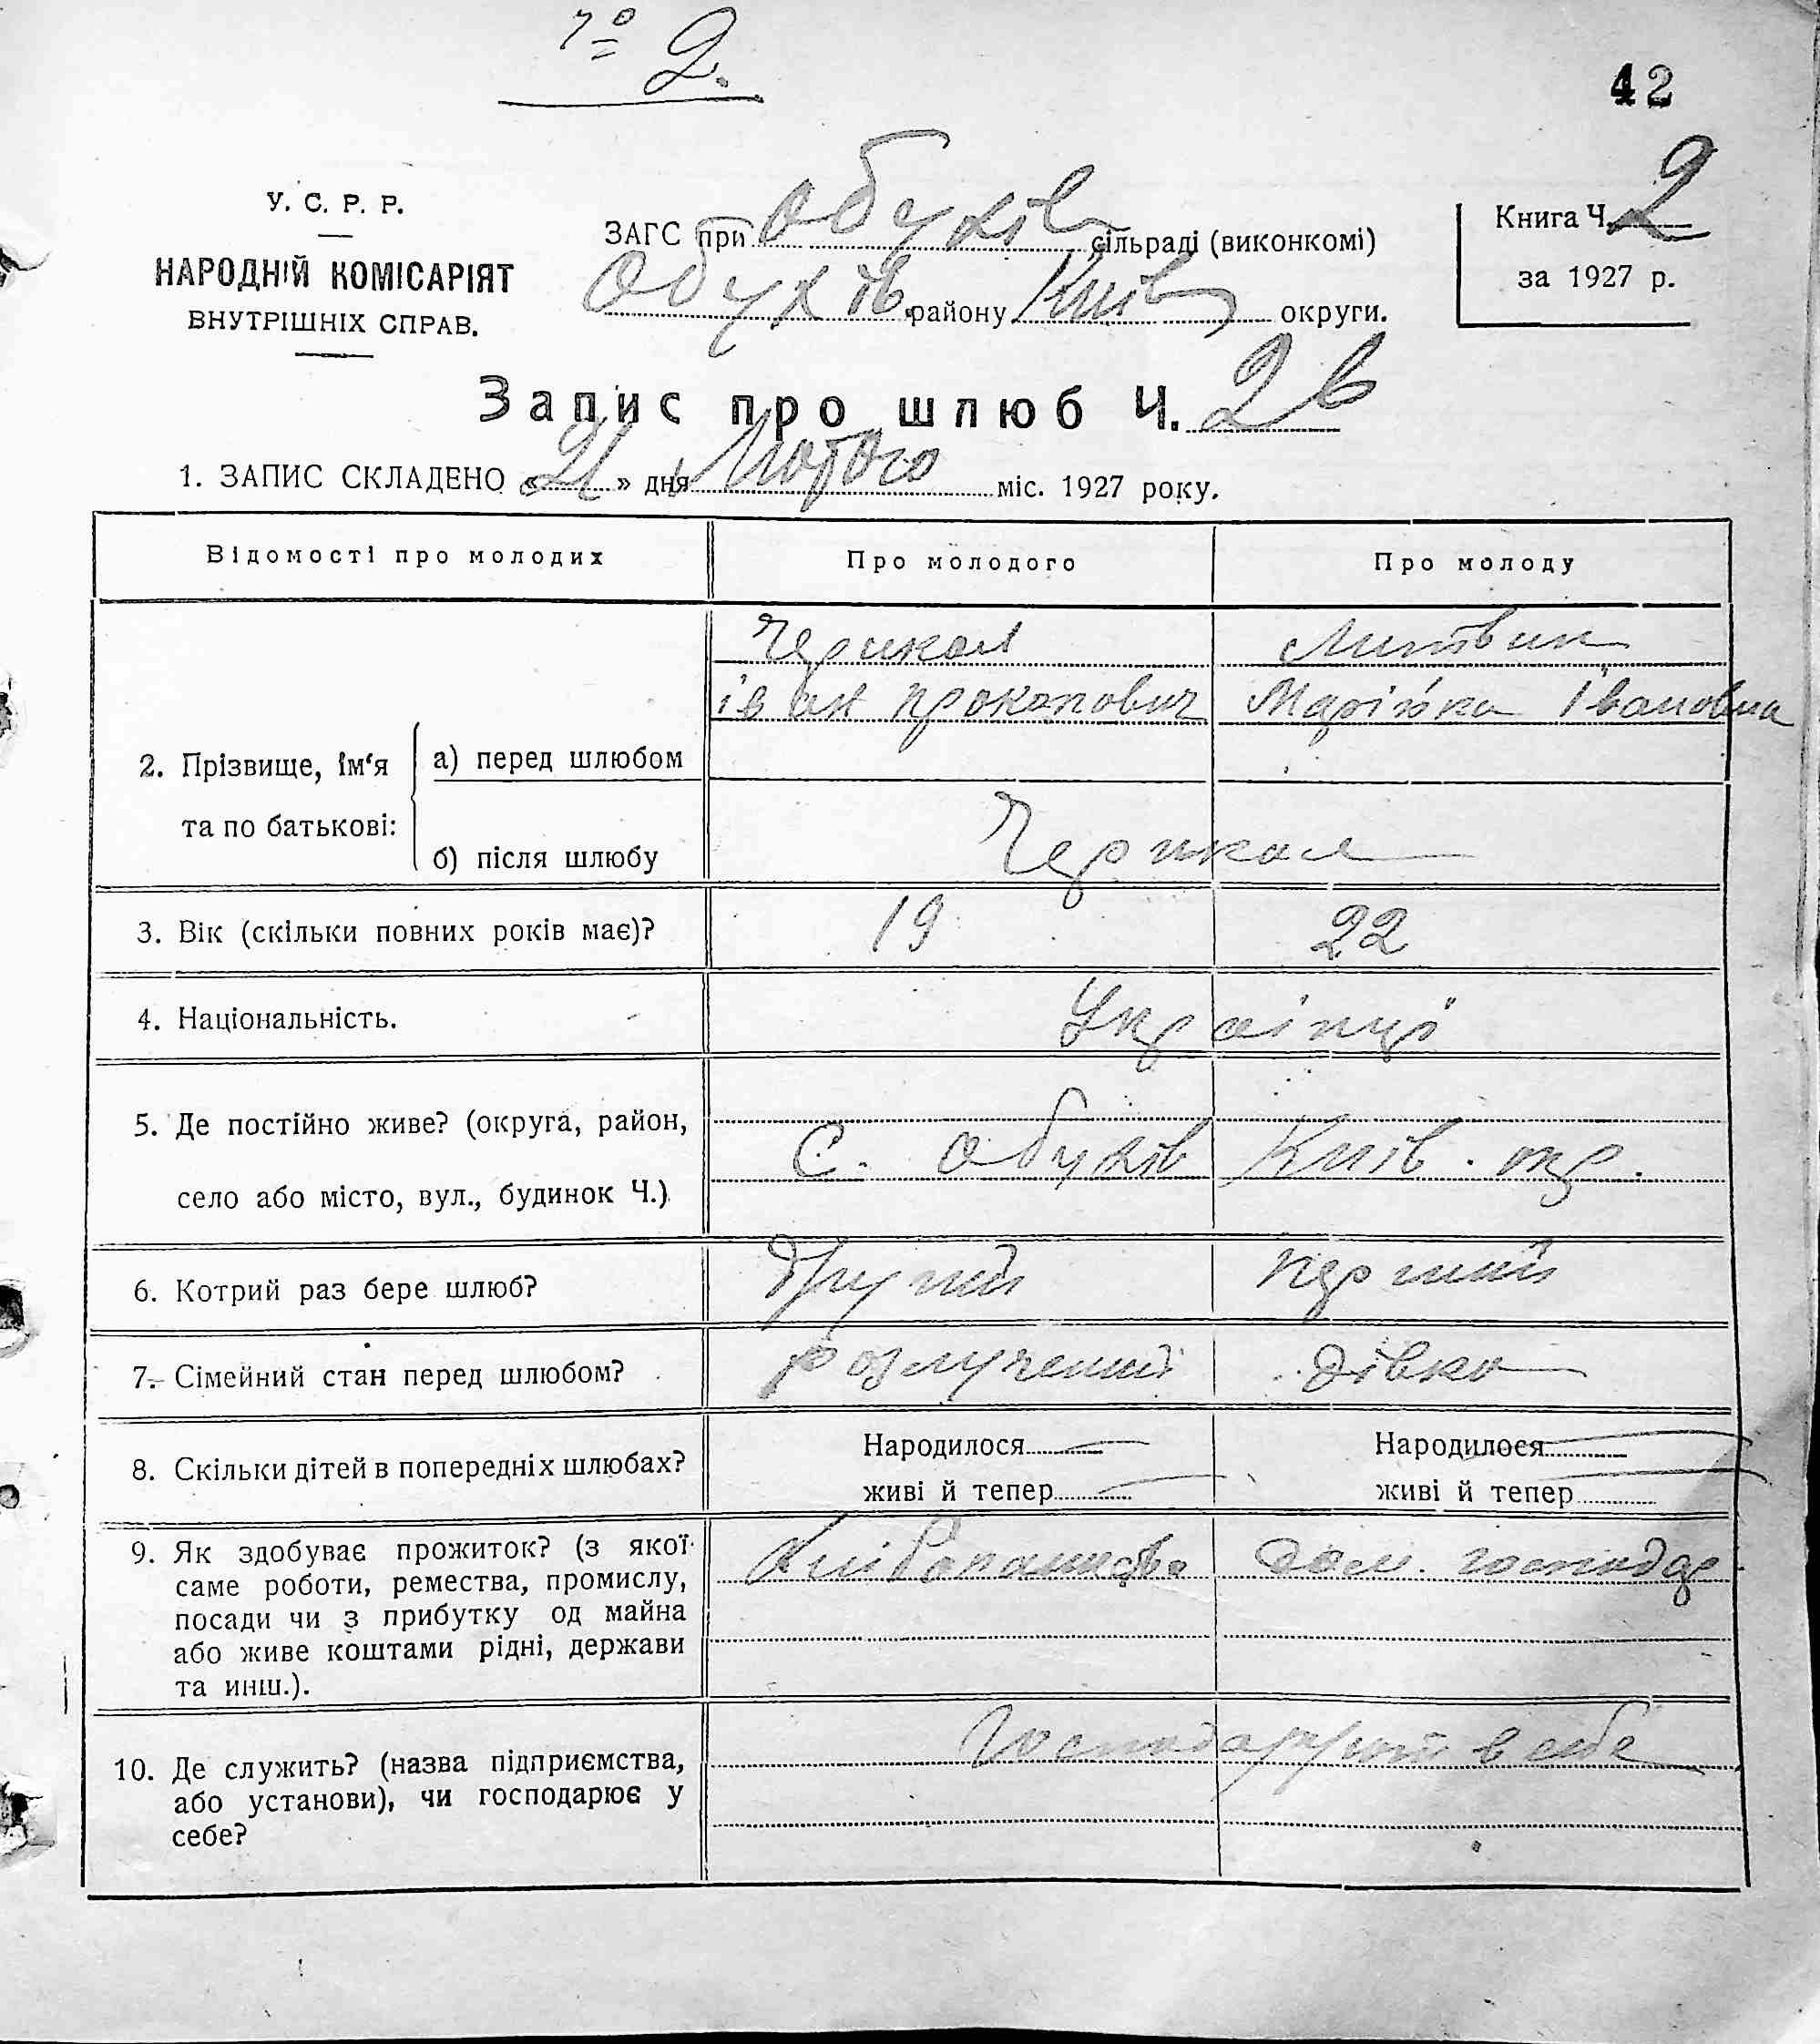 № 2.
42
У. С. Р. Р.
НАРОДНІЙ КОМІСАРІЯТ
ВНУТРІШНІХ СПРАВ.
ЗАГС при Обухів сільраді (виконкомі)
Обухів району Київ округи.
Книга Ч. 2
за 1927 р.
Запис про шлюб Ч. 26
1. ЗАПИС СКЛАДЕНО «21» дня Лютого міс. 1927 року.
Відомості про молодих Про молодого Про молоду
2. Прізвище, ім'я та по батькові:
а) перед шлюбом
Черикал Литвин
іван прокопович Марійка Івановна
б) після шлюбу
Черикал
3. Вік (скільки повних років має)? 19 22
4. Національність. Українці
5. Де постійно живе? (округа, район,
село або місто, вул., будинок Ч.)
С. Обухів Київ. окр.
6. Котрий раз бере шлюб? Другий перший
7. Сімейний стан перед шлюбом? розлучений дівка
8. Скільки дітей в попередніх шлюбах?
Народилося — Народилося —
живі й тепер — живі й тепер —
9. Як здобуває прожиток? (з якої
саме роботи, ремества, промислу,
посади чи з прибутку од майна
або живе коштами рідні, держави
та инш.).
Хліборобство дом. господар
10. Де служить? (назва підприємства,
або установи), чи господарює у
себе?
Господарують в себе